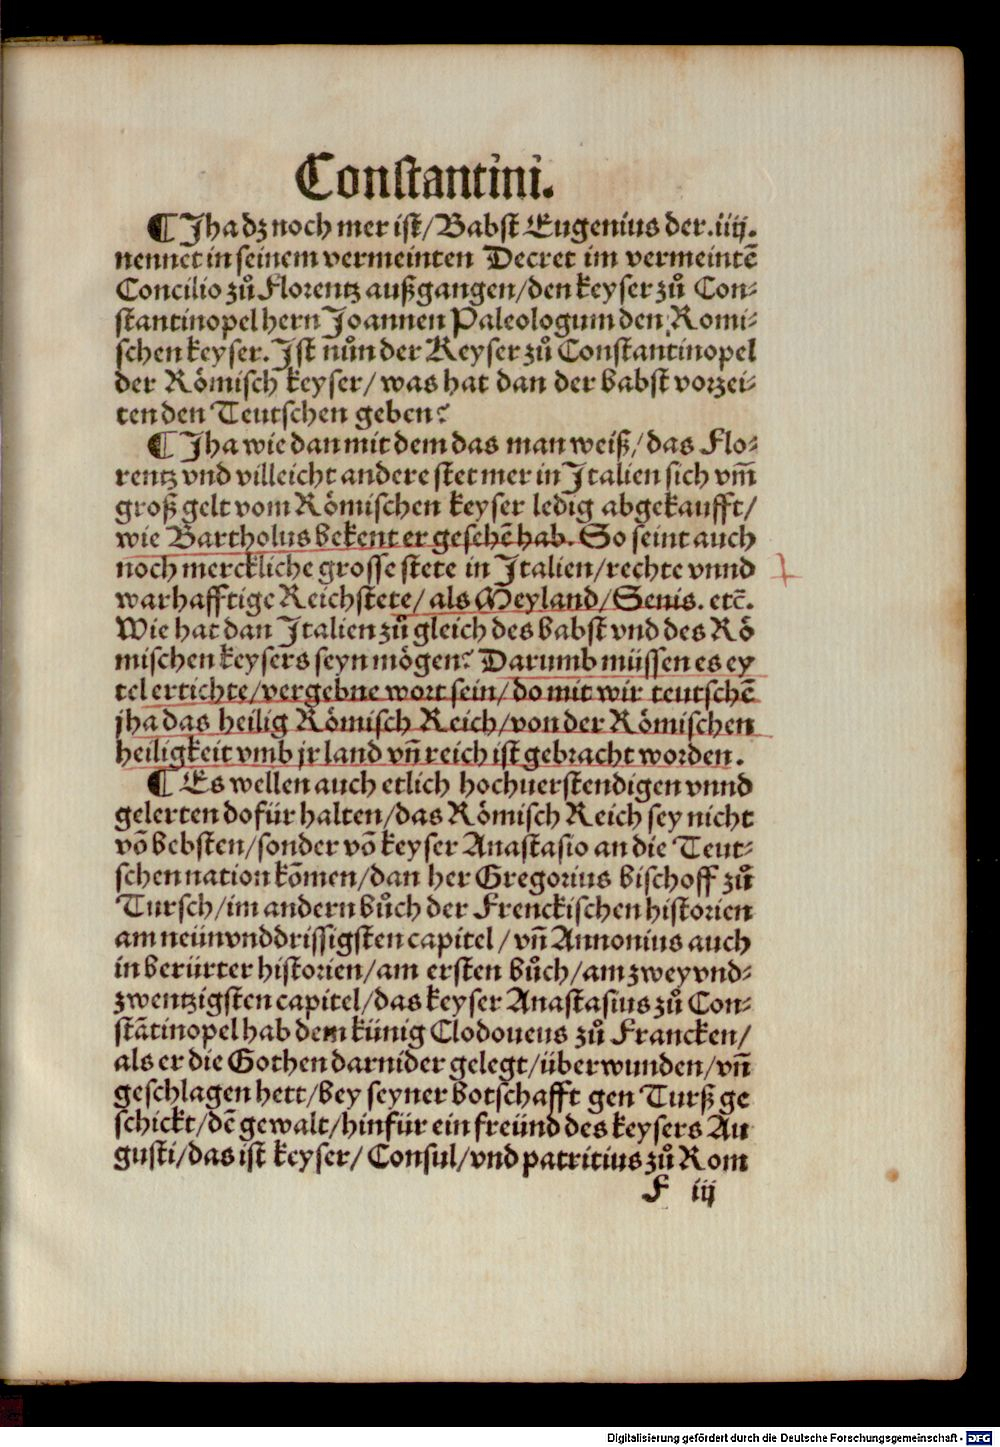 Constantini.
¶ Jha dz noch mer ist/ Babst Eugenius der .iiij.
nennet in seinem vermeinten Decret im vermeintē
Concilio zů Florentz außgangen/ den keyser zů Con⸗
stantinopel hern Joannen Paleologum den Romi⸗
schen keyser. Jst nůn der Keyser zů Constantinopel
der Römisch keyser/ was hat dan der babst vorzei⸗
ten den Teutschen geben?
¶ Jha wie dan mit dem das man weiß/ das Flo⸗
rentz vnd villeicht andere stet mer in Jtalien sich vm̄
groß gelt vom Römischen keyser ledig abgekaufft/
wie Bartholus bekent er gesehē hab. So seint auch
noch merckliche grosse stete in Jtalien/ rechte vnnd
warhafftige Reichstete/ als Meyland/ Senis. etc̄.
Wie hat dan Jtalien zů gleich des babst vnd des Rö
mischen keysers seyn mögen? Darumb müssen es ey
tel ertichte/ vergebne wort sein/ do mit wir teutschē
jha das heilig Römisch Reich/ von der Römischen
heiligkeit vmb jr land vn̄ reich ist gebracht worden.
¶ Es wellen auch etlich hochuerstendigen vnnd
gelerten dofür halten/ das Römisch Reich sey nicht
vō bebsten/ sonder vō keyser Anastasio an die Teut⸗
schen nation kōmen/ dan her Gregorius bischoff zů
Tursch/ im andern bůch der Frenckischen historien
am neün vnddrissigsten capitel/ vn̄ Annonius auch
in berürter historien/ am ersten bůch/ am zwey vnd⸗
zwentzigsten capitel/ das keyser Anastasius zů Con⸗
stātinopel hab dem künig Clodoueus zů Francken/
als er die Gothen darnider gelegt/ überwunden/ vn̄
geschlagen hett/ bey seyner botschafft gen Turß ge
schickt/ dē gewalt/ hinfür ein freünd des keysers Au
gusti/ das ist keyser/ Consul/ vnd patritius zů Rom
F iij
Digitalisierung gefördert durch die Deutsche Forschungsgemeinschaft - DFG